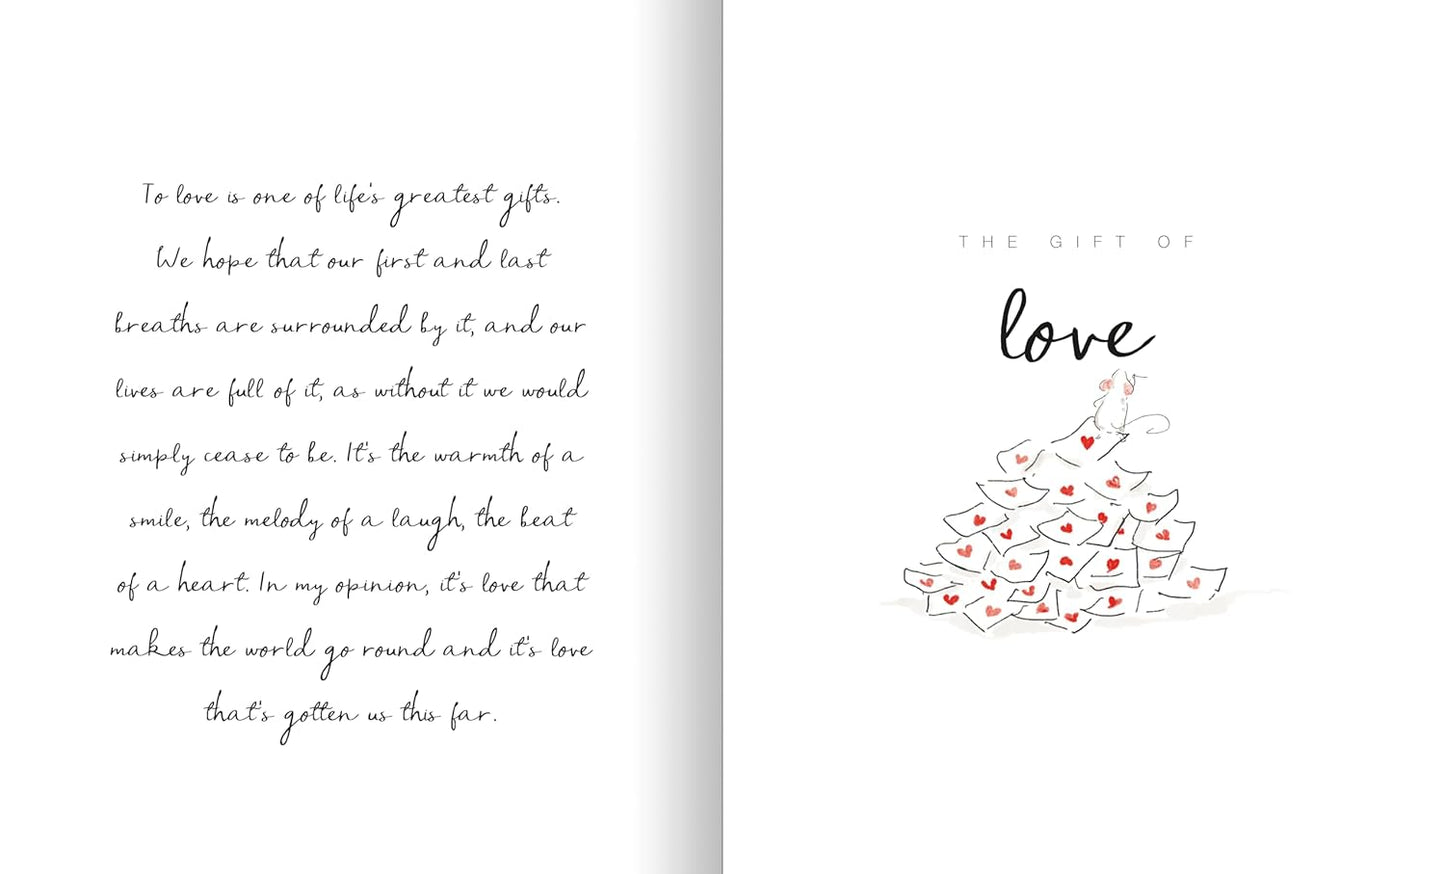 To love is one of life's greatest gifts.
We hope that our first and last
breaths are surrounded by it, and our
lives are full of it, as without it we would
simply cease to be. It's the warmth of a
smile, the melody of a laugh, the beat
of a heart. In my opinion, it's love that
makes the world go round and it's love
that's gotten us this far.
THE GIFT OF
love